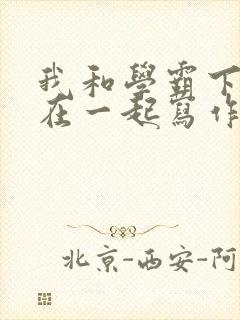 我和學霸下
在一起寫作
北京-西安-阿